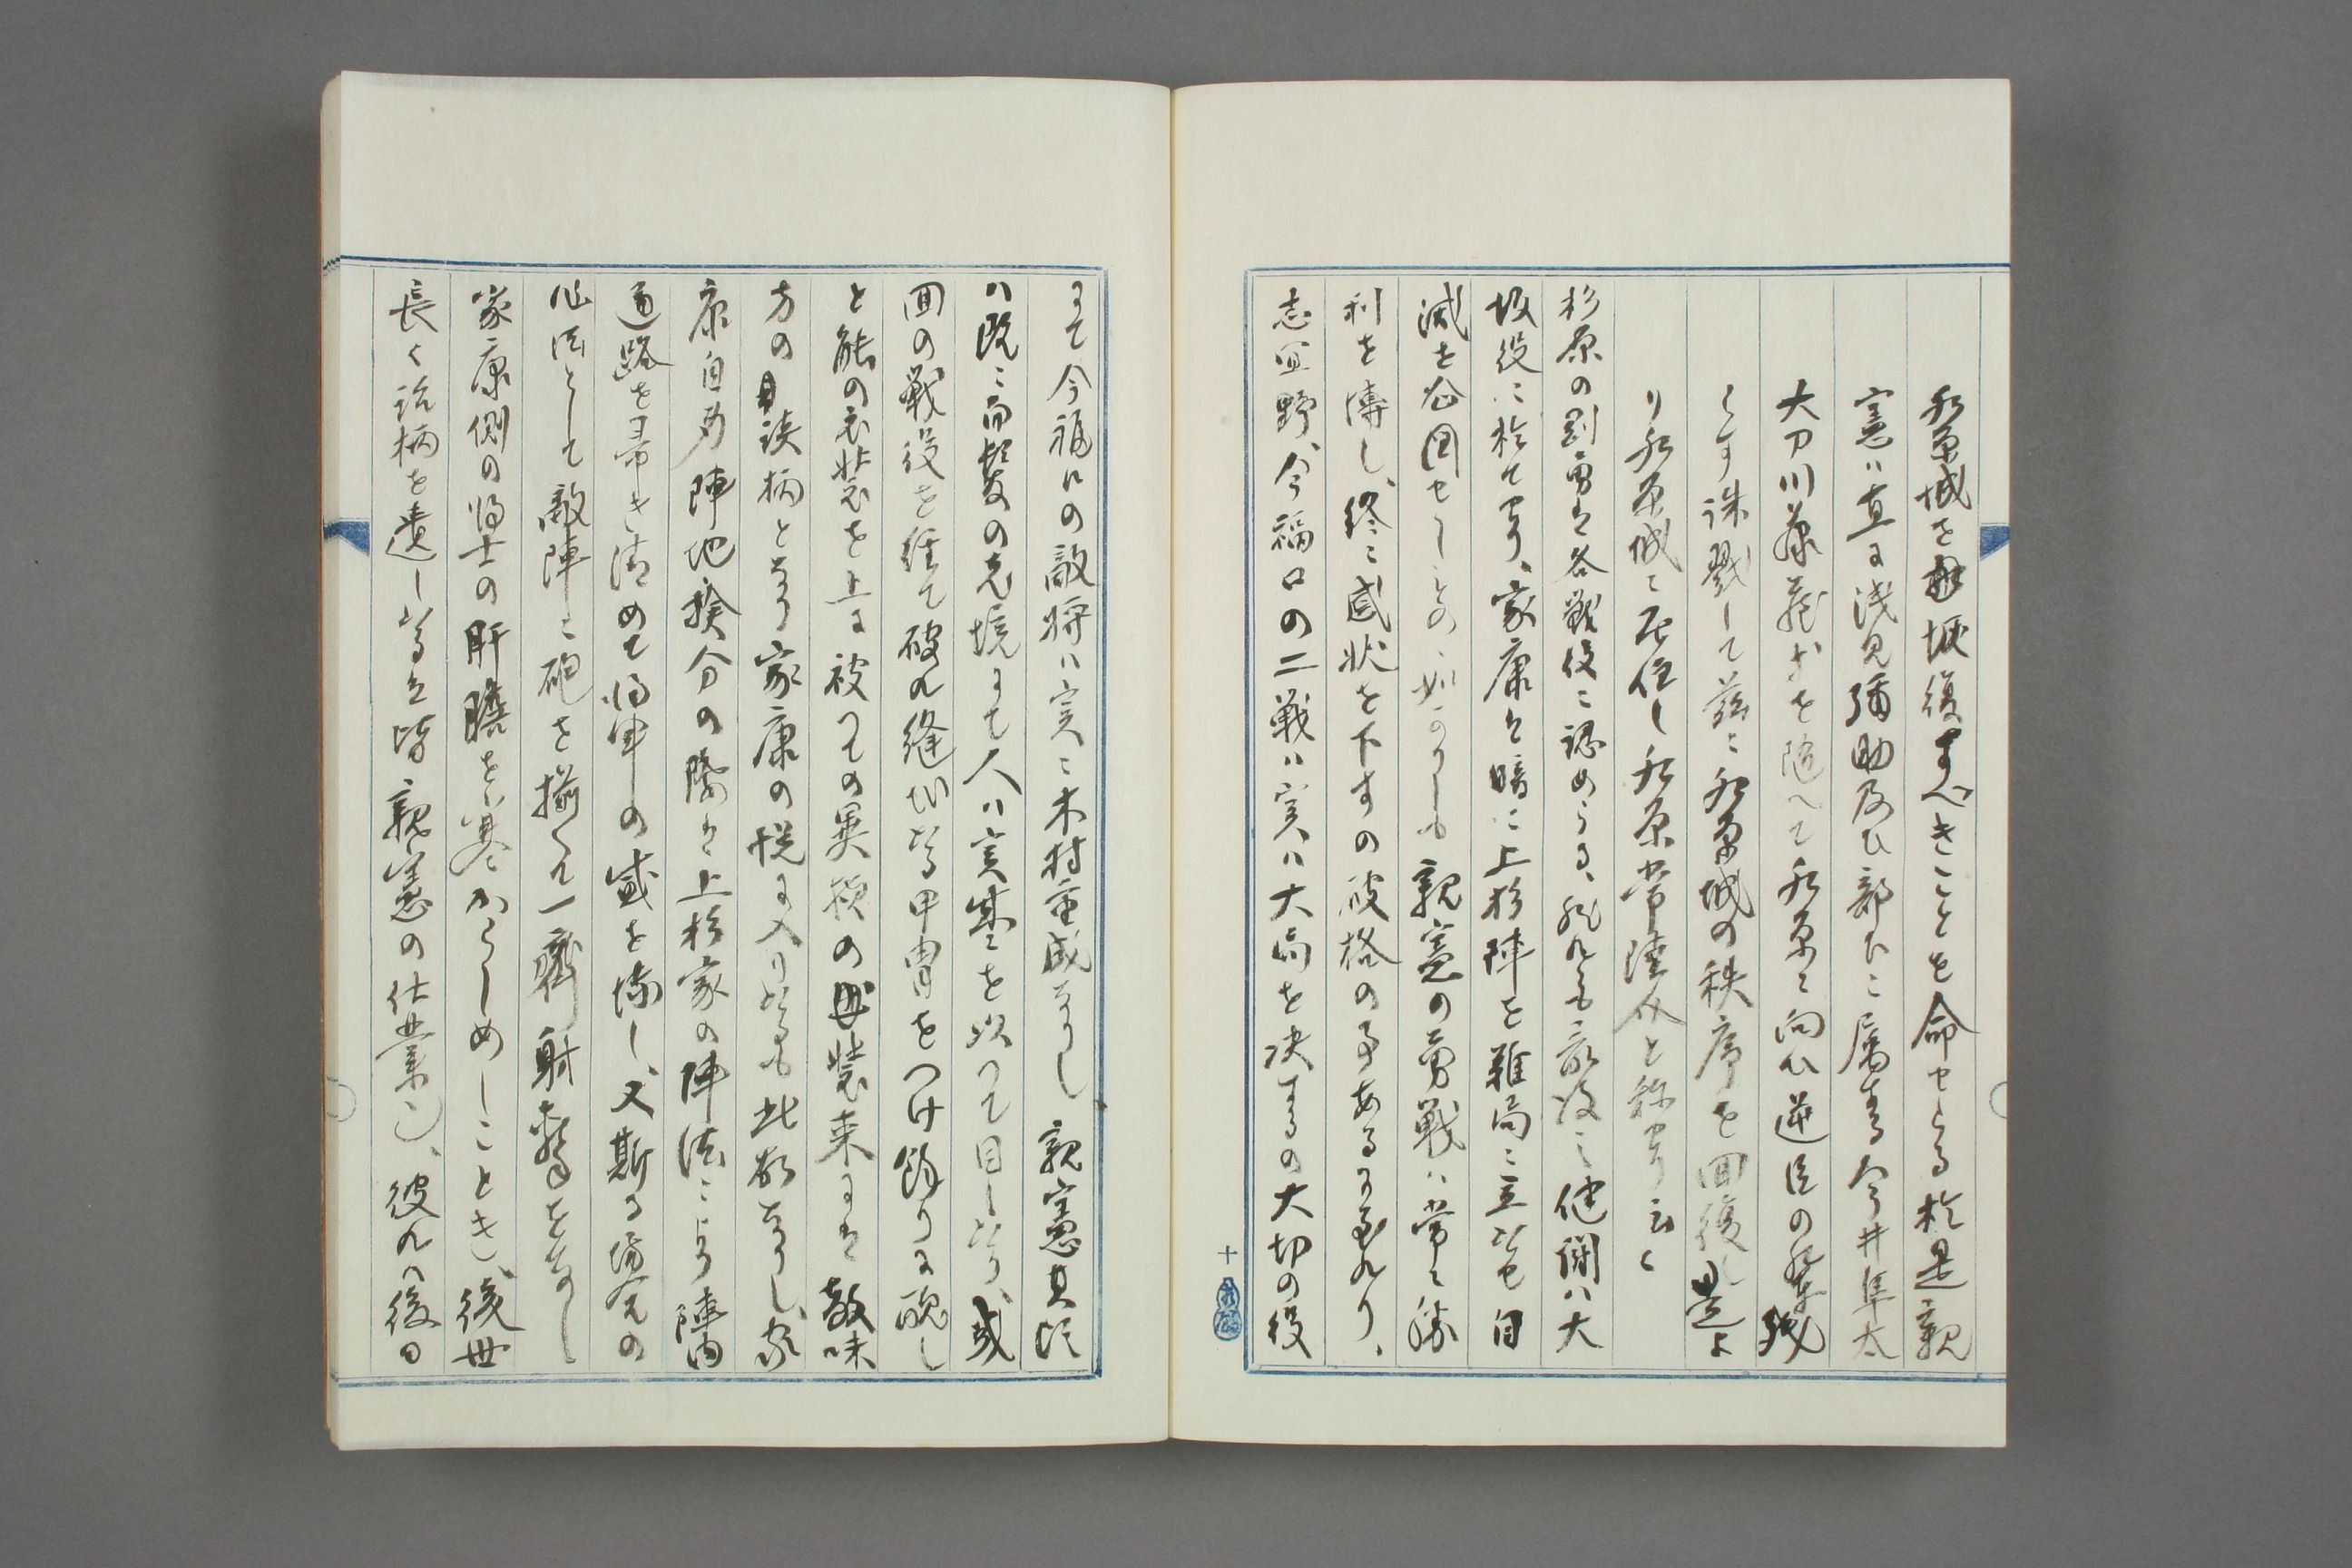 水原城を恢復すべきことを命せらる於是親
憲ハ直に浅見彌助及ひ部下に属する今井隼太
大刀川藤蔵等を随へて水原に向ひ逆臣の
らす誅戮して茲に水原城の秩序を回復し是よ
り水原城に在住し水原常陸介と称せり云く
杉原の剛勇は各戦役に認めらる、然れとも最後の健闘ハ大
坂役に於てせり、家康は暗に上杉陣を難局に立ハせ自
滅を企図せしものゝ如かりしも親憲の勇戦ハ常に勝
利を博し、終に感状を下すの破格の事あるに至れり、
志宜野、今福口の二戦ハ実ハ大局を決するの大切の役
にて今福口の敵将ハ実に木村重成なりし親憲其頃
ハ既に白髪の老境にて人ハ実甚を以つて目しけり、或
回の戦役を経て破れ縫ひける甲冑をつけ飾りに醜し
と能の衣裳を上に被つての異様の出装束には敵味
方の談柄となり家康の悦に入りけるも此故なりし、家
康自身陣地検分の際は上杉家の陣法により陣内
通路を帚き清めて将軍の威を添し、又斯る場合の
作法として敵陣に砲を揃へて一齊射撃をなし
家康側の将士の肝膽を寒からしめしことき、後世
長く話柄を遺しけるは皆親憲の仕業に、彼れハ後日
十